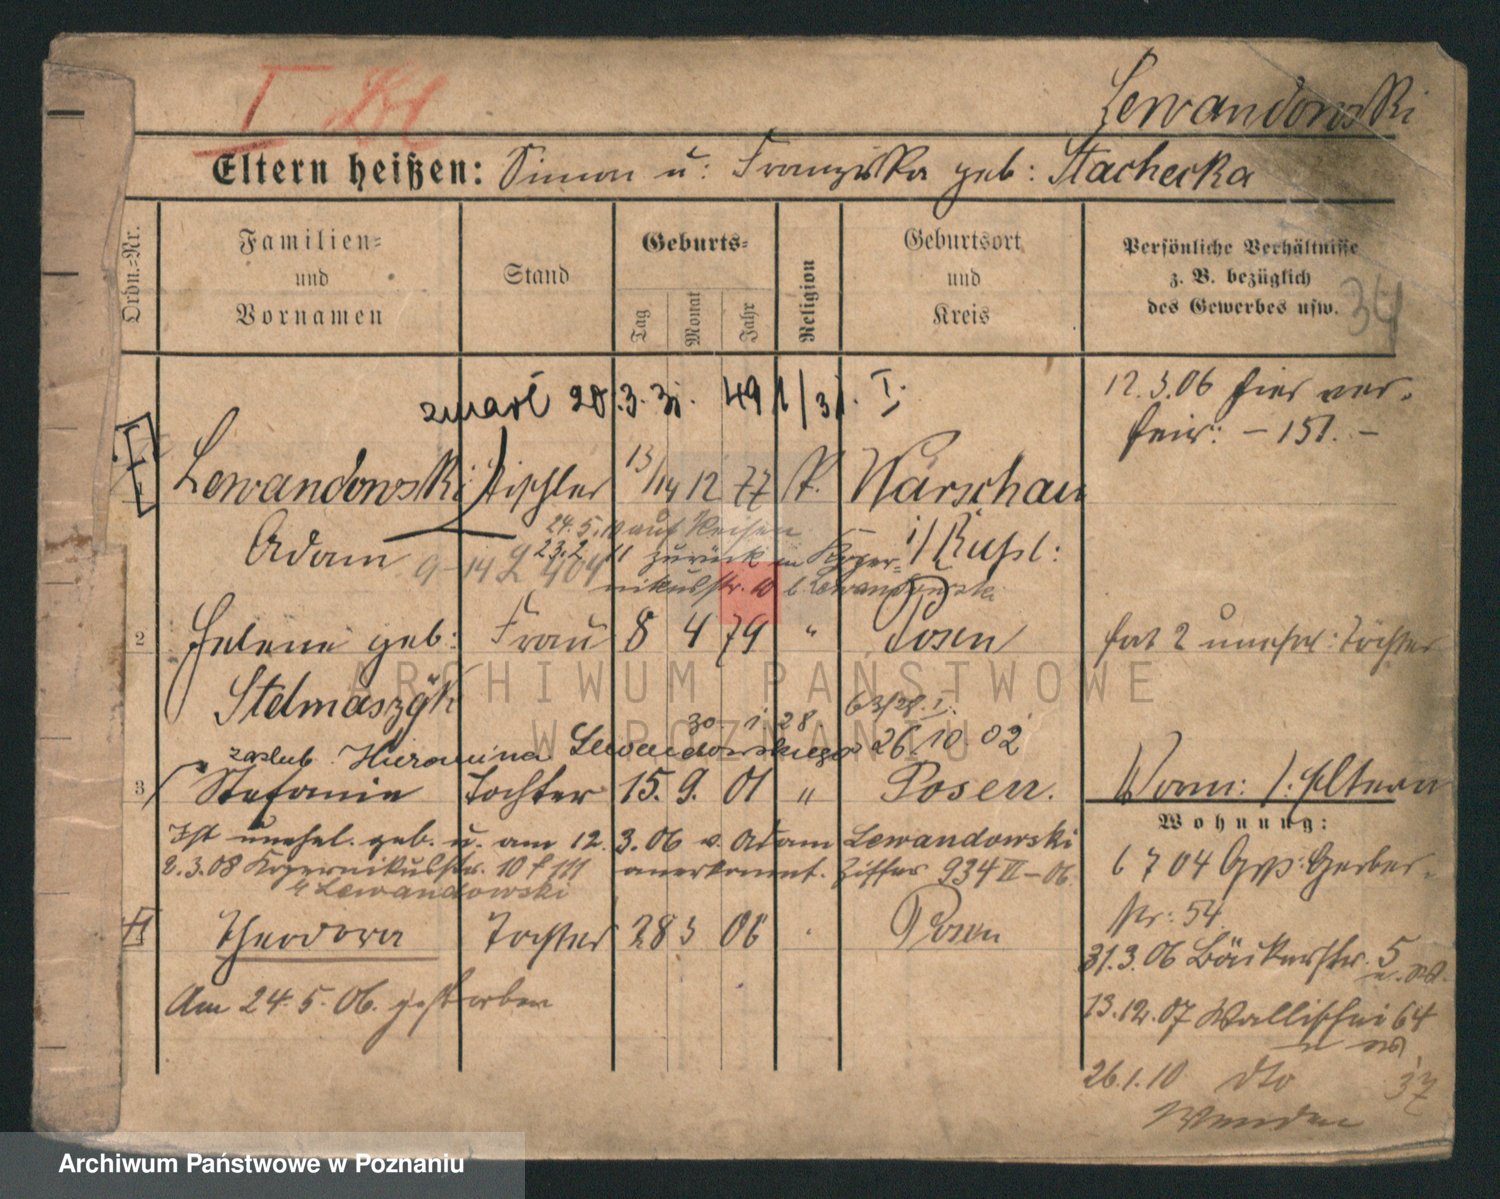 I
Lewandowski
Eltern heißen: Simon u: Franziska geb: Stachecka
Ordn.-Nr.
Familien-
und
Vornamen
Stand
Geburts-
Tag
Monat
Jahr
Religion
Geburtsort
und
Kreis
Persönliche Verhältnisse
z. B. bezüglich
des Gewerbes usw.
34
zmarł 28.3.31. 491/31. I.
12.3.06 hier ver-
heir: - 151. -
Lewandowski Tischler 13/14 12 77 K. Warschau
Adam
i/Rußl:
24.5.10 auf Reisen
23.2.11 zurück in Koper-
nikusstr. 10 b Lewandowska
2 Helene geb: Frau 8 4 79 " Posen
hat 2 unehel: Töchter
Stelmaszyk
30. 1. 28. 63/28. I.
zaślub. Hieronima Lewandowskiego 26.10.02
3 Stefanie Tochter 15. 9. 01 " Posen.
Wohn: b. Eltern
Ist unehel. geb. u. am 12.3.06 v. Adam Lewandowski
2.3.08 Kopernikusstr. 10 anerkannt. Ziffer 934 VI-06.
b Lewandowski
Theodora Tochter 28 3 06 Posen
Am 24.5.06. gestorben
Wohnung:
6704 Gerber-
str: 54.
31.3.06 Bäckerstr. 5
13.12.07 Wallischei 64
26.1.10 dto 37
Wenden
ARCHIWUM PAŃSTWOWE
W POZNANIU
Archiwum Państwowe w Poznaniu